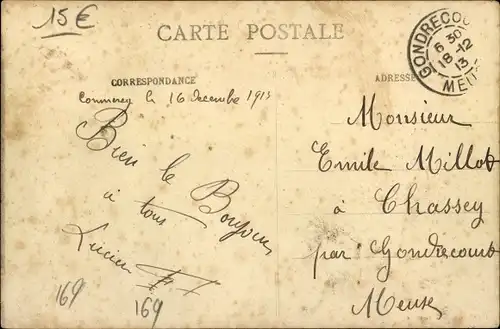 15€
CARTE POSTALE
GONDRECOU
6 30
18-12
13
MEUSE
CORRESPONDANCE
ADRESSE
Commercy le 16 Decembre 1913
Bien le Bonjour
à tous
Lucien
Monsieur
Emile Millot
à Chassey
par Gondrecourt
Meuse
169
169